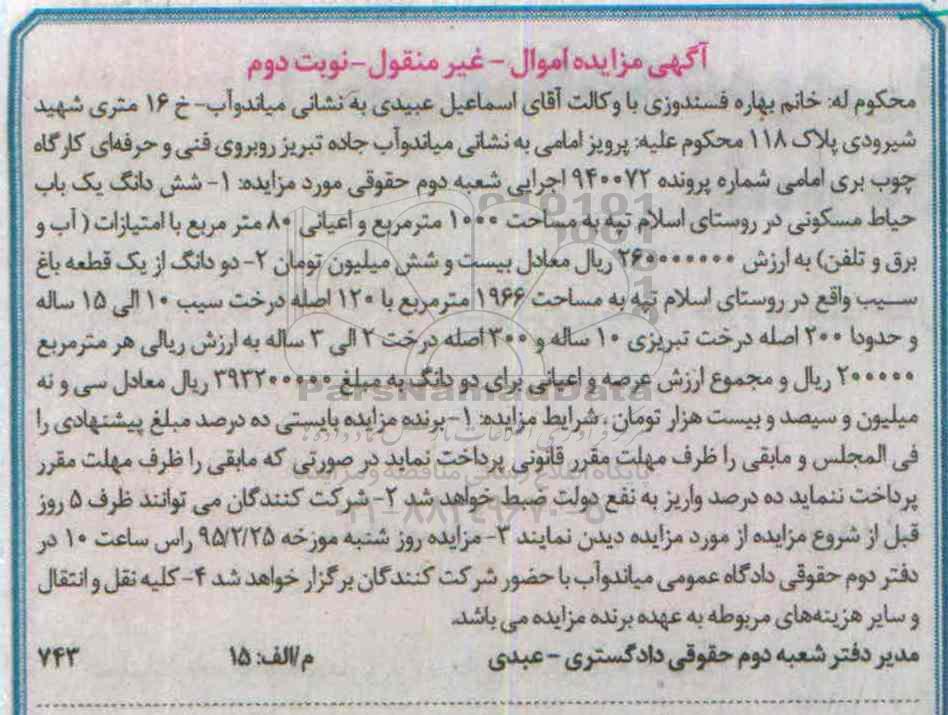 آگهی مزایده اموال - غیر منقول - نوبت دوم
محکوم له: خانم بهاره فسندوزی با وکالت آقای اسماعیل عبیدی به نشانی میاندوآب- خ ۱۶ متری شهید
شیرودی پلاک ۱۱۸ محکوم علیه: پرویز امامی به نشانی میاندوآب جاده تبریز روبروی فنی و حرفه‌ای کارگاه
چوب بری امامی شماره پرونده ۹۴۰۰۷۲ اجرایی شعبه دوم حقوقی مورد مزایده: ۱- شش دانگ یک باب
حیاط مسکونی در روستای اسلام تپه به مساحت ۱۰۰۰ مترمربع و اعیانی ۸۰ متر مربع با امتیازات ( آب و
برق و تلفن) به ارزش ۲۶۰۰۰۰۰۰۰ ریال معادل بیست و شش میلیون تومان ۲- دو دانگ از یک قطعه باغ
سیب واقع در روستای اسلام تپه به مساحت ۱۹۶۶ مترمربع با ۱۲۰ اصله درخت سیب ۱۰ الی ۱۵ ساله
و حدودا ۲۰۰ اصله درخت تبریزی ۱۰ ساله و ۳۰۰ اصله درخت ۲ الی ۳ ساله به ارزش ریالی هر مترمربع
۲۰۰۰۰۰ ریال و مجموع ارزش عرصه و اعیانی برای دو دانگ به مبلغ ۳۹۳۲۰۰۰۰۰ ریال معادل سی و نه
میلیون و سیصد و بیست هزار تومان، شرایط مزایده: ۱- برنده مزایده بایستی ده درصد مبلغ پیشنهادی را
فی المجلس و مابقی را ظرف مهلت مقرر قانونی پرداخت نماید در صورتی که مابقی را ظرف مهلت مقرر
پرداخت ننماید ده درصد واریز به نفع دولت ضبط خواهد شد ۲- شرکت کنندگان می توانند ظرف ۵ روز
قبل از شروع مزایده از مورد مزایده دیدن نمایند ۳- مزایده روز شنبه مورخه ۹۵/۲/۲۵ راس ساعت ۱۰ در
دفتر دوم حقوقی دادگاه عمومی میاندوآب با حضور شرکت کنندگان برگزار خواهد شد ۴- کلیه نقل و انتقال
و سایر هزینه‌های مربوطه به عهده برنده مزایده می باشد.
مدیر دفتر شعبه دوم حقوقی دادگستری - عبدی م/الف: ۱۵ ۷۴۳
ParsNamadData